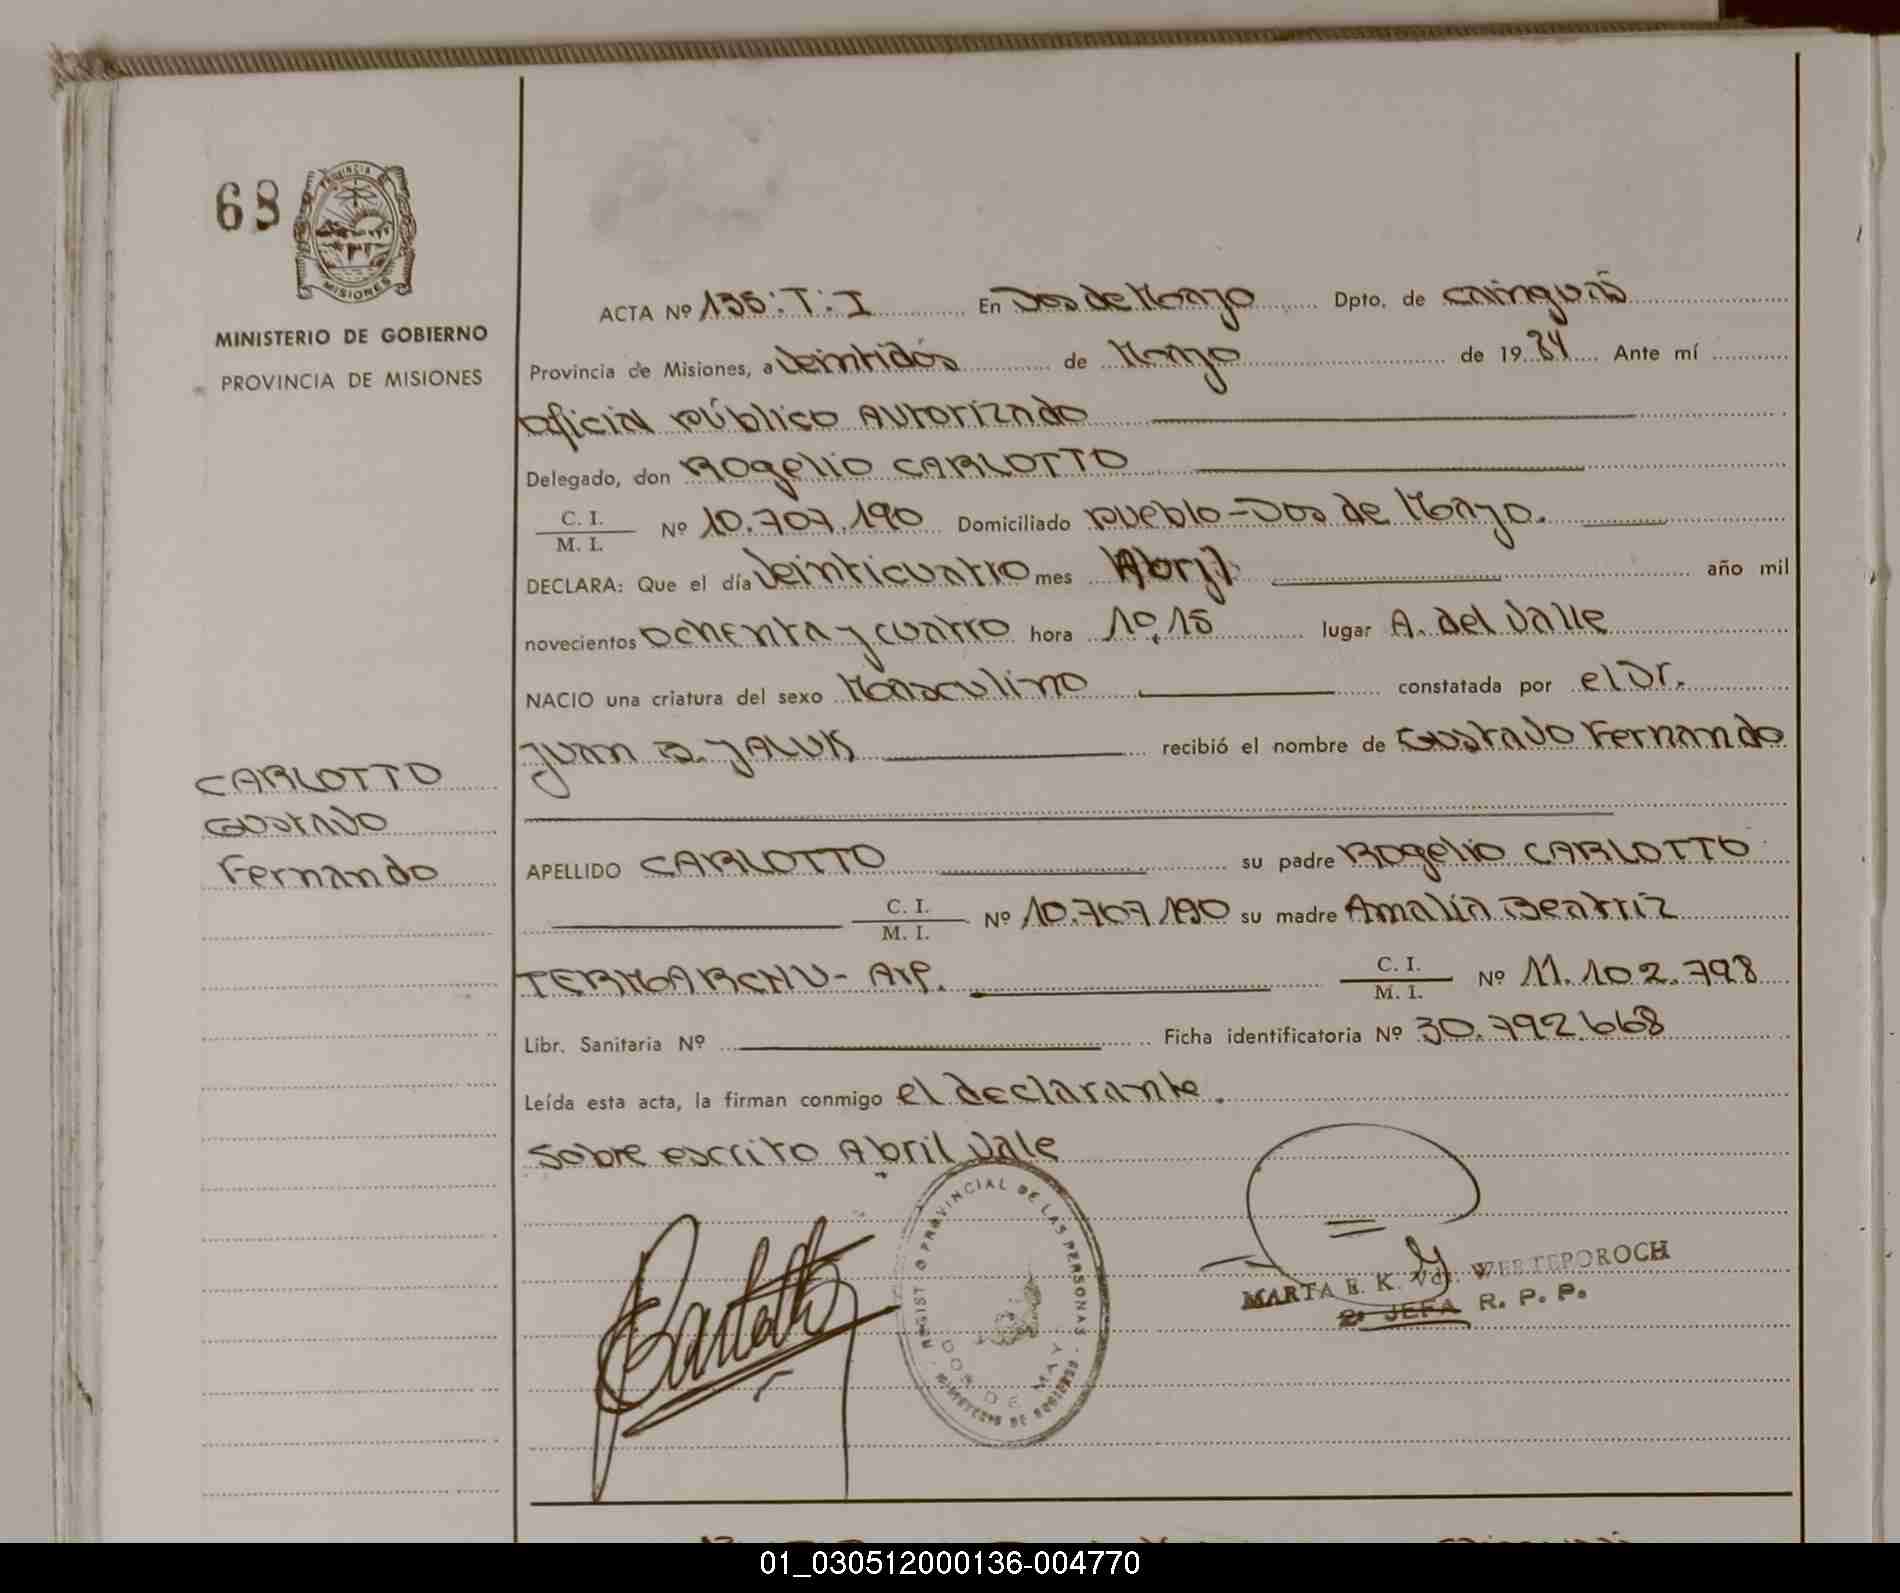 68
PROVINCIA DE
MISIONES
MINISTERIO DE GOBIERNO
PROVINCIA DE MISIONES
ACTA Nº 135:T:I En Dos de Mayo Dpto. de Cainguás
Provincia de Misiones, a Veintidós de Mayo de 19 84 Ante mí
Oficial Público Autorizado
Delegado, don Rogelio CARLOTTO
C. I.
M. I. Nº 10.707.190 Domiciliado Pueblo-Dos de Mayo.
DECLARA: Que el día Veinticuatro mes Abril año mil
novecientos ochenta y cuatro hora 10,15 lugar A. del Valle
NACIO una criatura del sexo Masculino constatada por el Dr.
Juan B. YALUK recibió el nombre de Gustavo Fernando
CARLOTTO
Gustavo
Fernando
APELLIDO CARLOTTO su padre Rogelio CARLOTTO
C. I.
M. I. Nº 10.707.190 su madre Amalia Beatriz
C. I.
M. I. Nº 11.102.798
Libr. Sanitaria Nº Ficha identificatoria Nº 30.792.668
Leída esta acta, la firman conmigo el declarante.
Sobre escrito Abril Vale
REGISTRO PROVINCIAL DE LAS PERSONAS
DOS DE MAY
MINISTERIO DE GOBIERNO
MARTA E. K. Vda.
2º JEFA R. P. P.
01_030512000136-004770